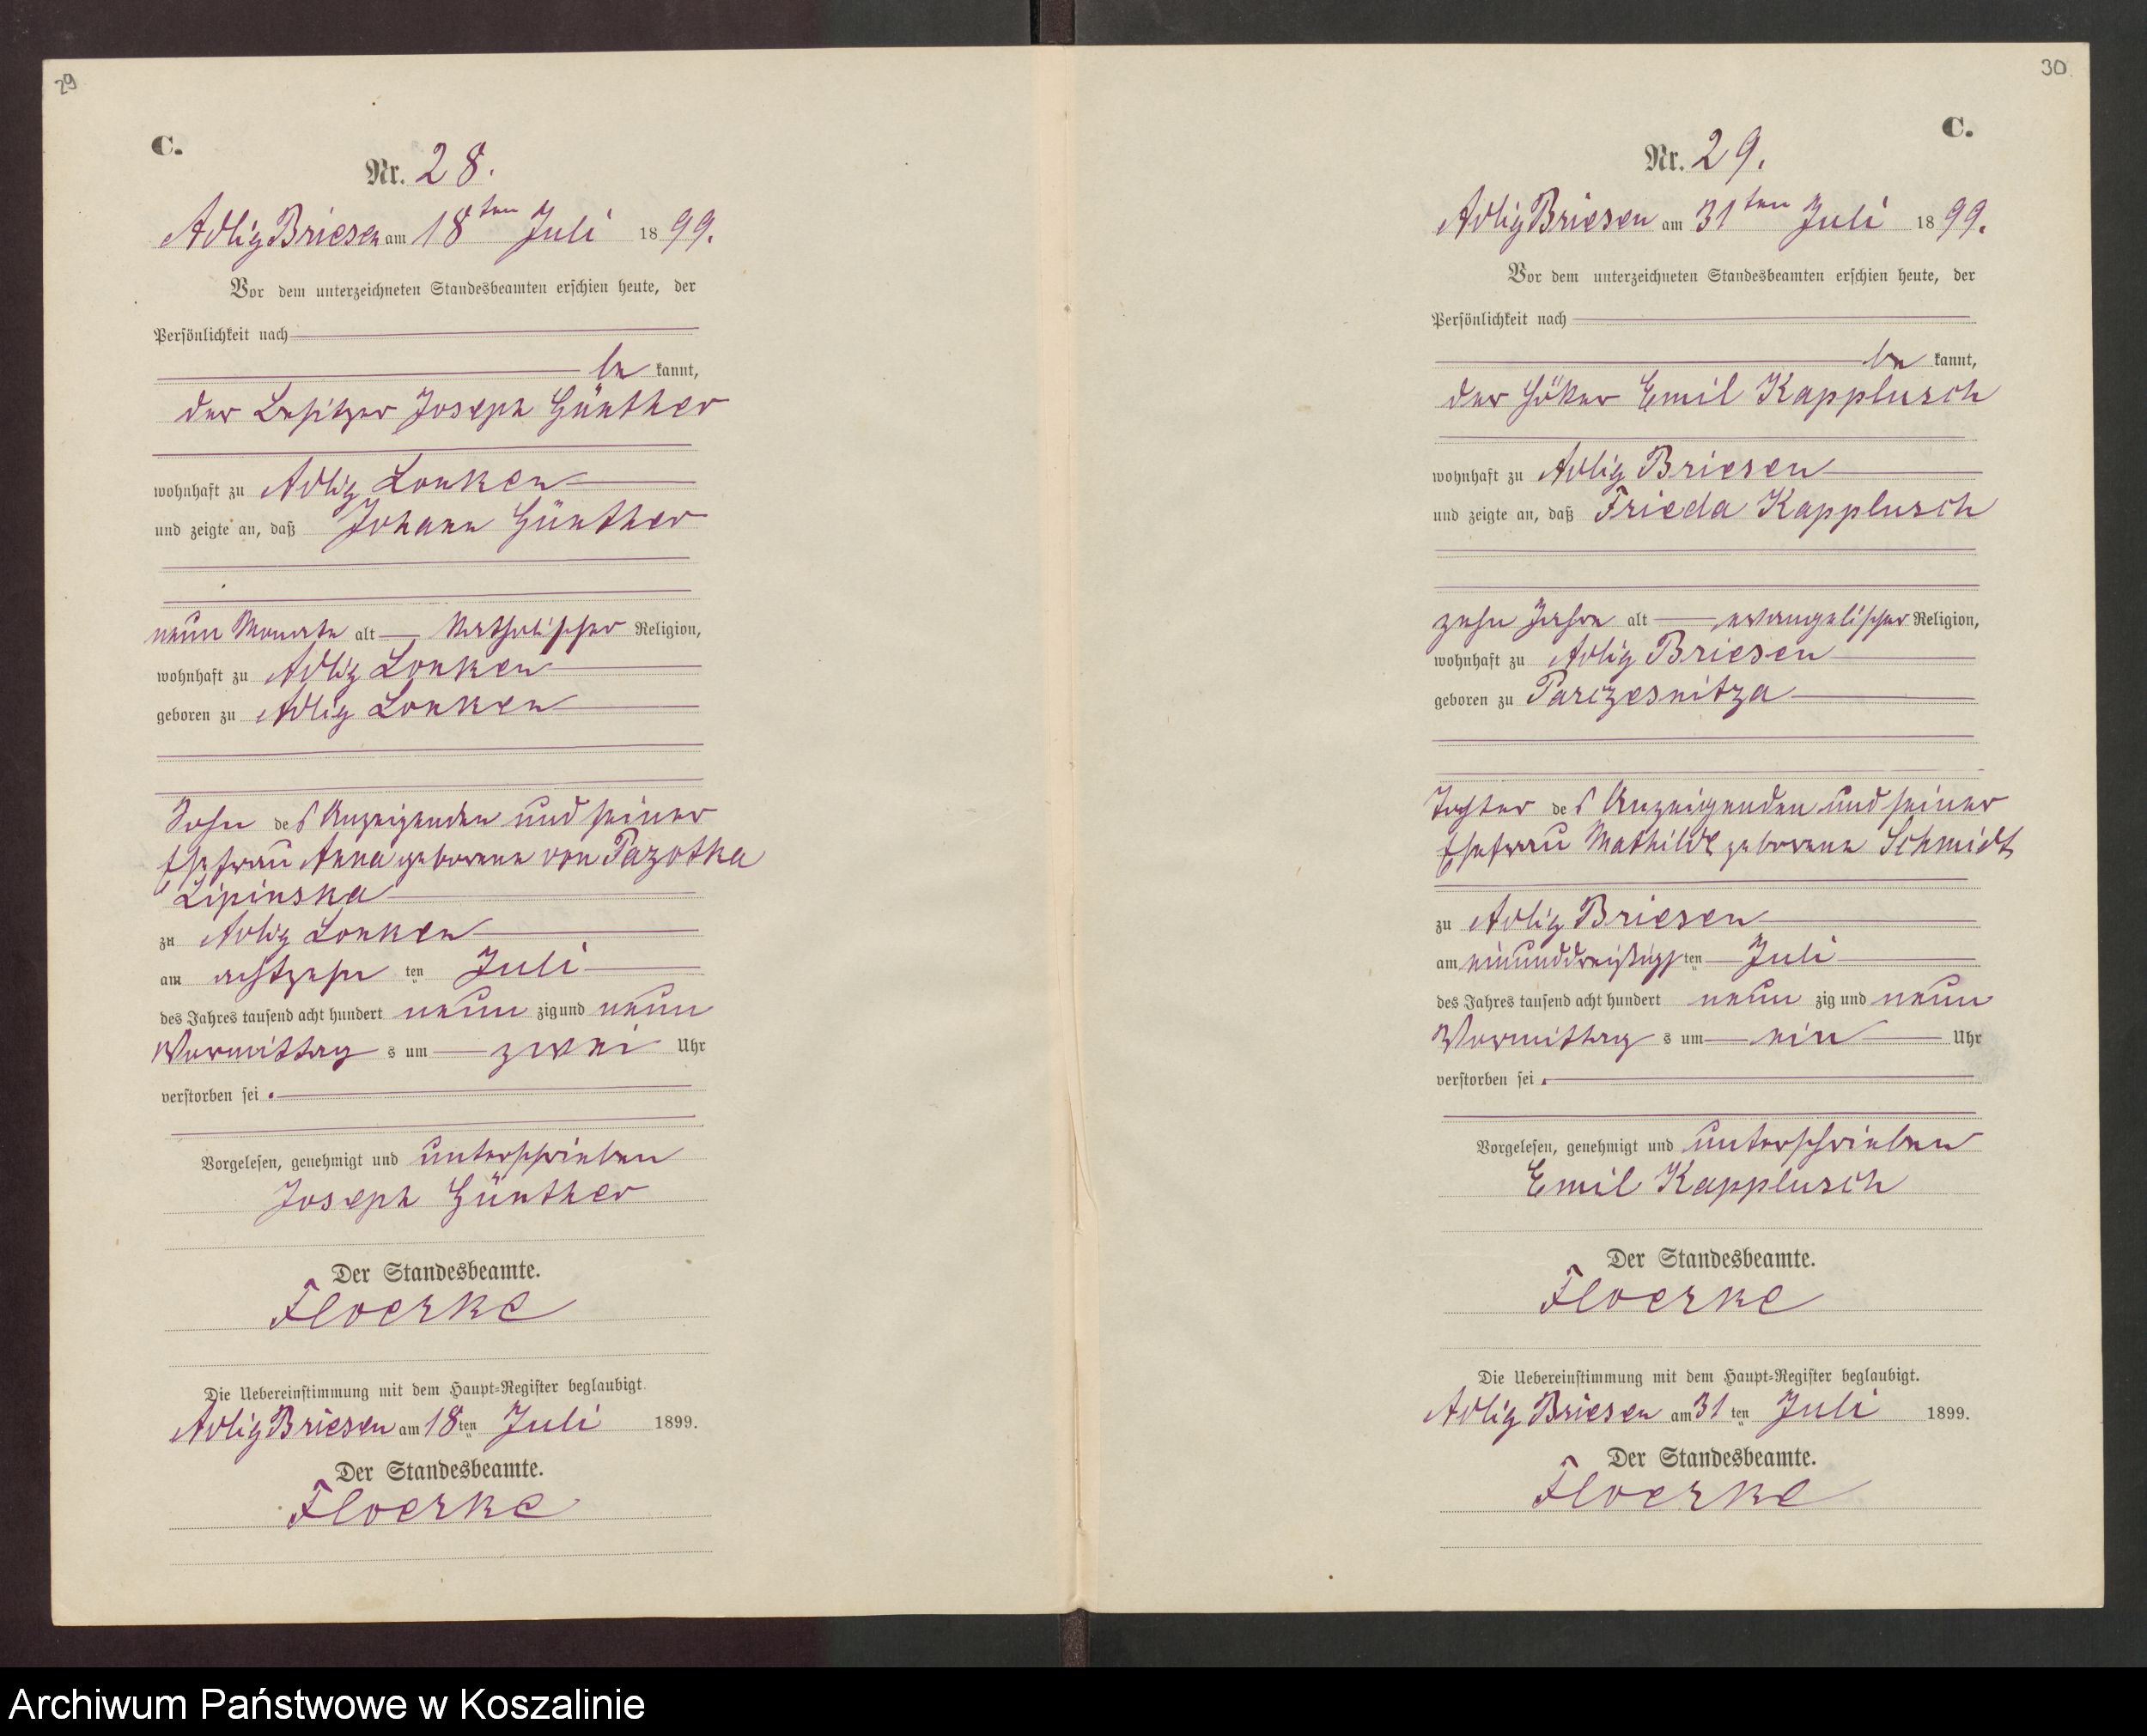 29
C.
Nr. 28.
Adlig Briesen am 18ten Juli 1899.
Vor dem unterzeichneten Standesbeamten erschien heute, der
Persönlichkeit nach
be kannt,
der Besitzer Joseph Günther
wohnhaft zu Adlig Lonken
und zeigte an, daß Johann Günther
neun Monate alt katholischer Religion,
wohnhaft zu Adlig Lonken
geboren zu Adlig Lonken
Sohn des Anzeigenden und seiner
Ehefrau Anna geborene von Pazotka
Lipinska
zu Adlig Lonken
am achtzehn ten Juli
des Jahres tausend acht hundert neun zig und neun
Vormittag s um zwei Uhr
verstorben sei.
Vorgelesen, genehmigt und unterschrieben
Joseph Günther
Der Standesbeamte.
Floerke
Die Uebereinstimmung mit dem Haupt-Register beglaubigt.
Adlig Briesen am 18ten Juli 1899.
Der Standesbeamte.
Floerke
30
C.
Nr. 29.
Adlig Briesen am 31ten Juli 1899.
Vor dem unterzeichneten Standesbeamten erschien heute, der
Persönlichkeit nach
be kannt,
der Höker Emil Kapplusch
wohnhaft zu Adlig Briesen
und zeigte an, daß Frieda Kapplusch
zehn Jahre alt evangelischer Religion,
wohnhaft zu Adlig Briesen
geboren zu Parczesnitza
Tochter des Anzeigenden und seiner
Ehefrau Mathilde geborene Schmidt
zu Adlig Briesen
am einunddreißigs ten Juli
des Jahres tausend acht hundert neun zig und neun
Vormittag s um ein Uhr
verstorben sei.
Vorgelesen, genehmigt und unterschrieben
Emil Kapplusch
Der Standesbeamte.
Floerke
Die Uebereinstimmung mit dem Haupt-Register beglaubigt.
Adlig Briesen am 31 ten Juli 1899.
Der Standesbeamte.
Floerke
Archiwum Państwowe w Koszalinie